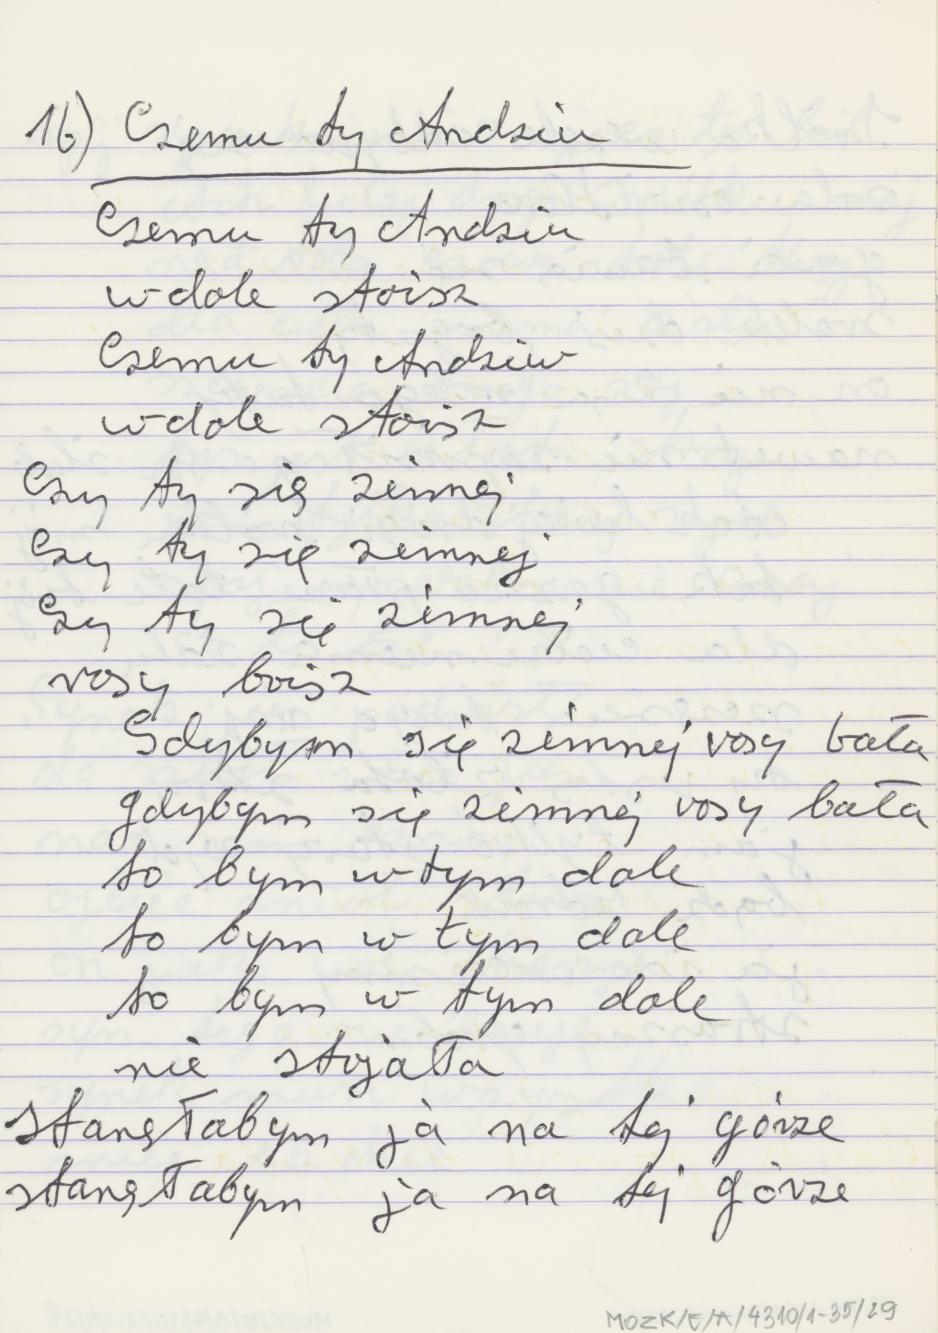 16) Czemu ty Andziu
Czemu ty Andziu
w dole stoisz
Czemu ty Andziu
w dole stoisz
Czy ty się zimnej
Czy ty się zimnej
Czy ty się zimnej
rosy boisz
Gdybym się zimnej rosy bała
gdybym się zimnej rosy bała
to bym w tym dole
to bym w tym dole
to bym w tym dole
nie stojała
Stanęłabym ja na tej górze
stanęłabym ja na tej górze
MOZK/E/A/4310/1-35/29